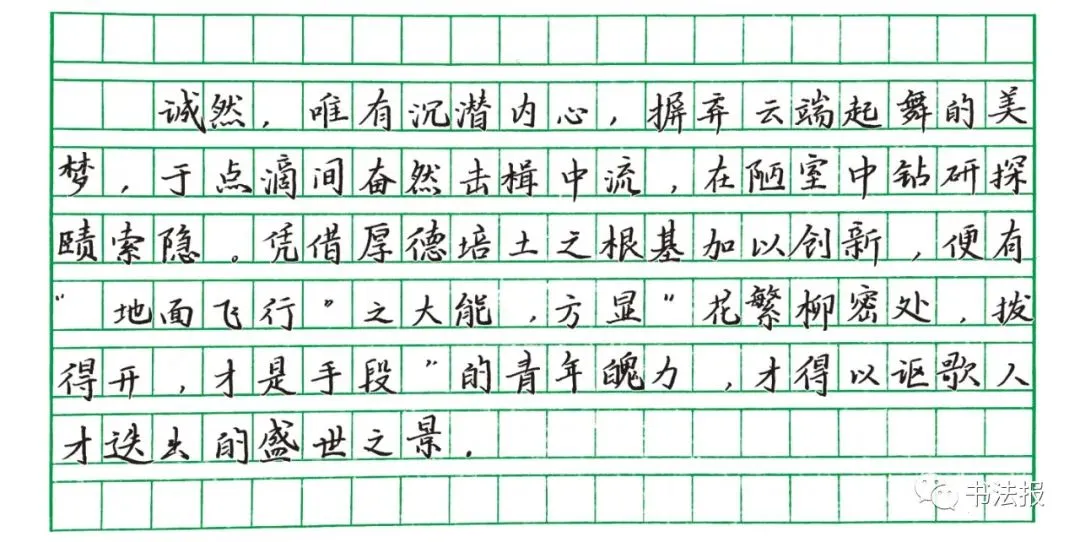 诚然，唯有沉潜内心，摒弃云端起舞的美
梦，于点滴间奋然击楫中流，在陋室中钻研探
赜索隐。凭借厚德培土之根基加以创新，便有
“地面飞行”之大能，方显“花繁柳密处，拨
得开，才是手段”的青年魄力，才得以讴歌人
才迭出的盛世之景.
书法报